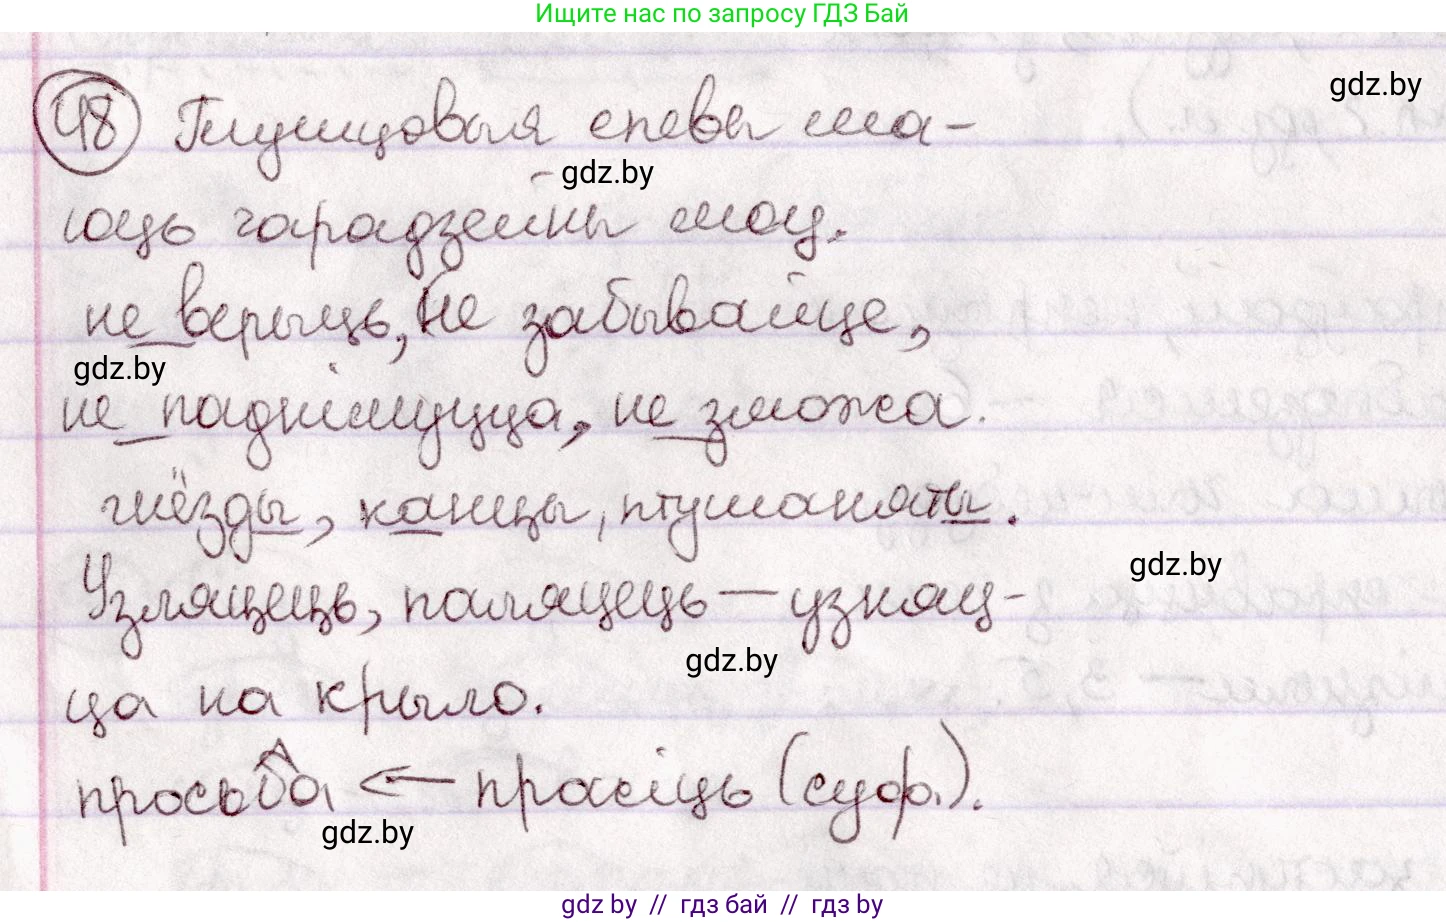 Ищите нас по запросу ГДЗ Бай
gdz.by
48 Птушыныя спевы ма-
gdz.by
юць чарадзейны моц.
не верыць, не забывайце,
gdz.by
не паднімуцца, не зможа.
гнёзды, канцы, птушаняты.
gdz.by
Узляцець, паляцець — узняц-
gdz.by
ца на крыло.
просьба ← прасіць (суф.).
gdz.by
gdz by // гдз бай // гдз by